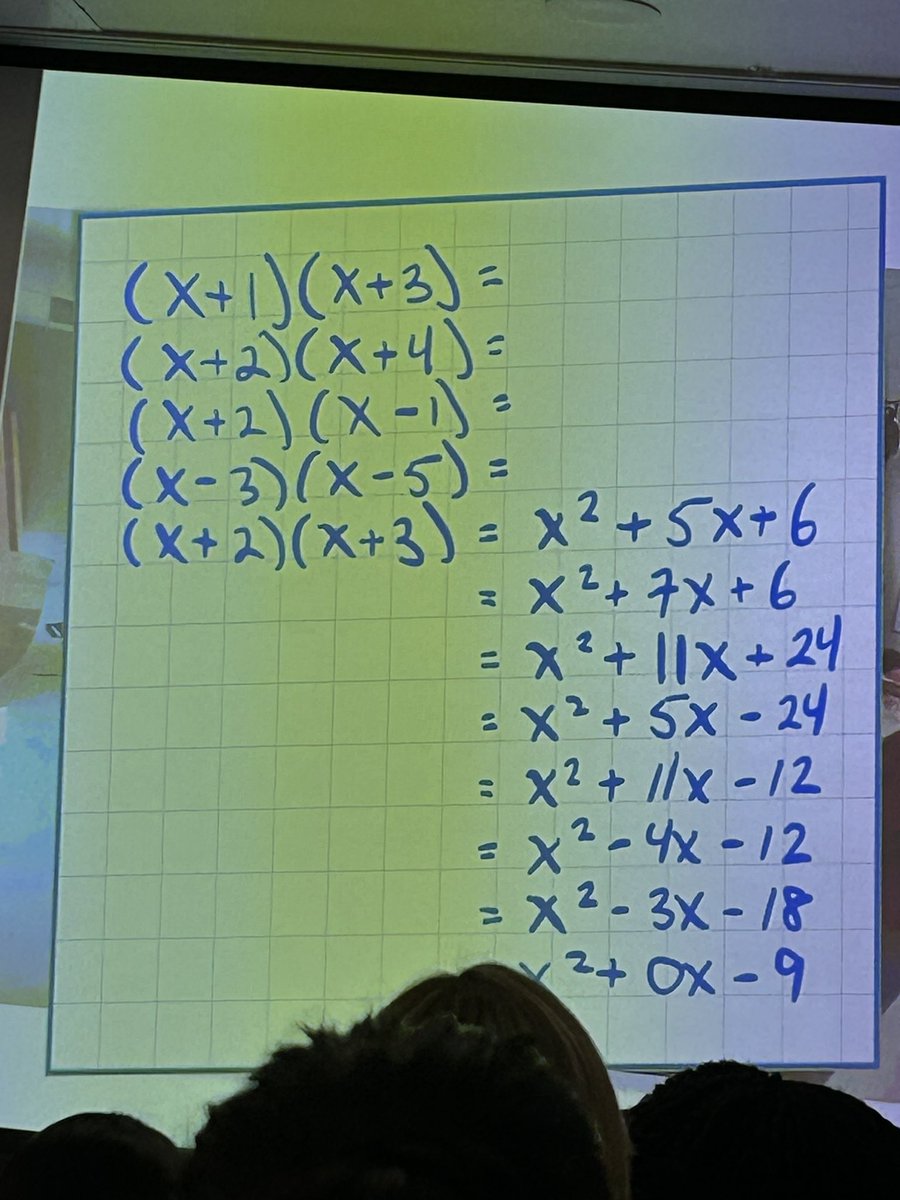 (x+1)(x+3) =
(x+2)(x+4) =
(x+2)(x-1) =
(x-3)(x-5) =
(x+2)(x+3) = x² + 5x + 6
= x² + 7x + 6
= x² + 11x + 24
= x² + 5x - 24
= x² + 11x - 12
= x² - 4x - 12
= x² - 3x - 18
x² + 0x - 9